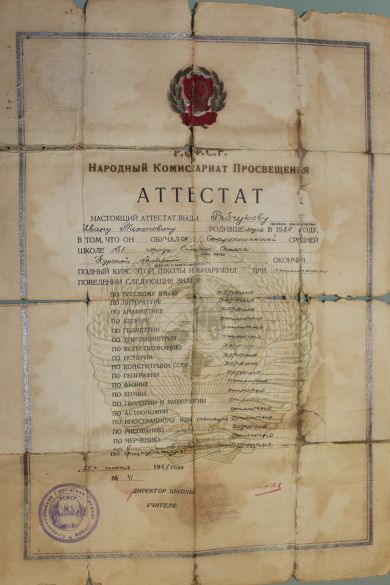 Р.С.Ф.С.Р.
НАРОДНЫЙ КОМИССАРИАТ ПРОСВЕЩЕНИЯ
АТТЕСТАТ
НАСТОЯЩИЙ АТТЕСТАТ ВЫДАН Рябчукову
Ивану Тихоновичу РОДИВШЕМУСЯ В 1924 ГОДУ,
В ТОМ, ЧТО ОН ОБУЧАЛСЯ В Старооскольской СРЕДНЕЙ
ШКОЛЕ №1 города Старый Оскол
Курской области ОКОНЧИЛ
ПОЛНЫЙ КУРС ЭТОЙ ШКОЛЫ И ОБНАРУЖИЛ ПРИ отличном
ПОВЕДЕНИИ СЛЕДУЮЩИЕ ЗНАНИЯ:
ПО РУССКОМУ ЯЗЫКУ хорошо
ПО ЛИТЕРАТУРЕ хорошо
ПО АРИФМЕТИКЕ хорошо
ПО АЛГЕБРЕ отлично
ПО ГЕОМЕТРИИ отлично
ПО ТРИГОНОМЕТРИИ отлично
ПО ЕСТЕСТВОЗНАНИЮ
ПО ИСТОРИИ хорошо
ПО КОНСТИТУЦИИ СССР хорошо
ПО ГЕОГРАФИИ хорошо
ПО ФИЗИКЕ отлично
ПО ХИМИИ отлично
ПО ГЕОЛОГИИ И МИНЕРАЛОГИИ отлично
ПО АСТРОНОМИИ отлично
ПО ИНОСТРАННОМУ ЯЗЫКУ (немецкому) отлично
ПО РИСОВАНИЮ хорошо
ПО ЧЕРЧЕНИЮ отлично
ПО
ПО физкультуре
25 июня 1941 года
№ 41
ДИРЕКТОР ШКОЛЫ
УЧИТЕЛЯ: